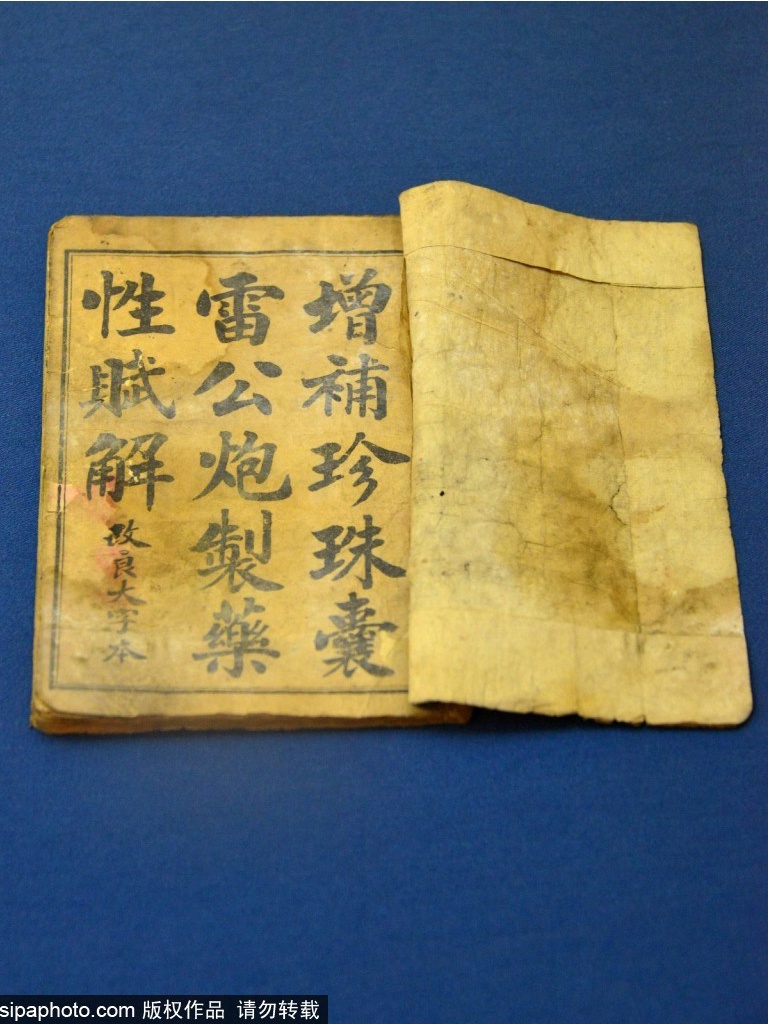 增補珍珠囊
雷公炮製藥
性賦解
改良大字本
sipaphoto.com 版权作品 请勿转载